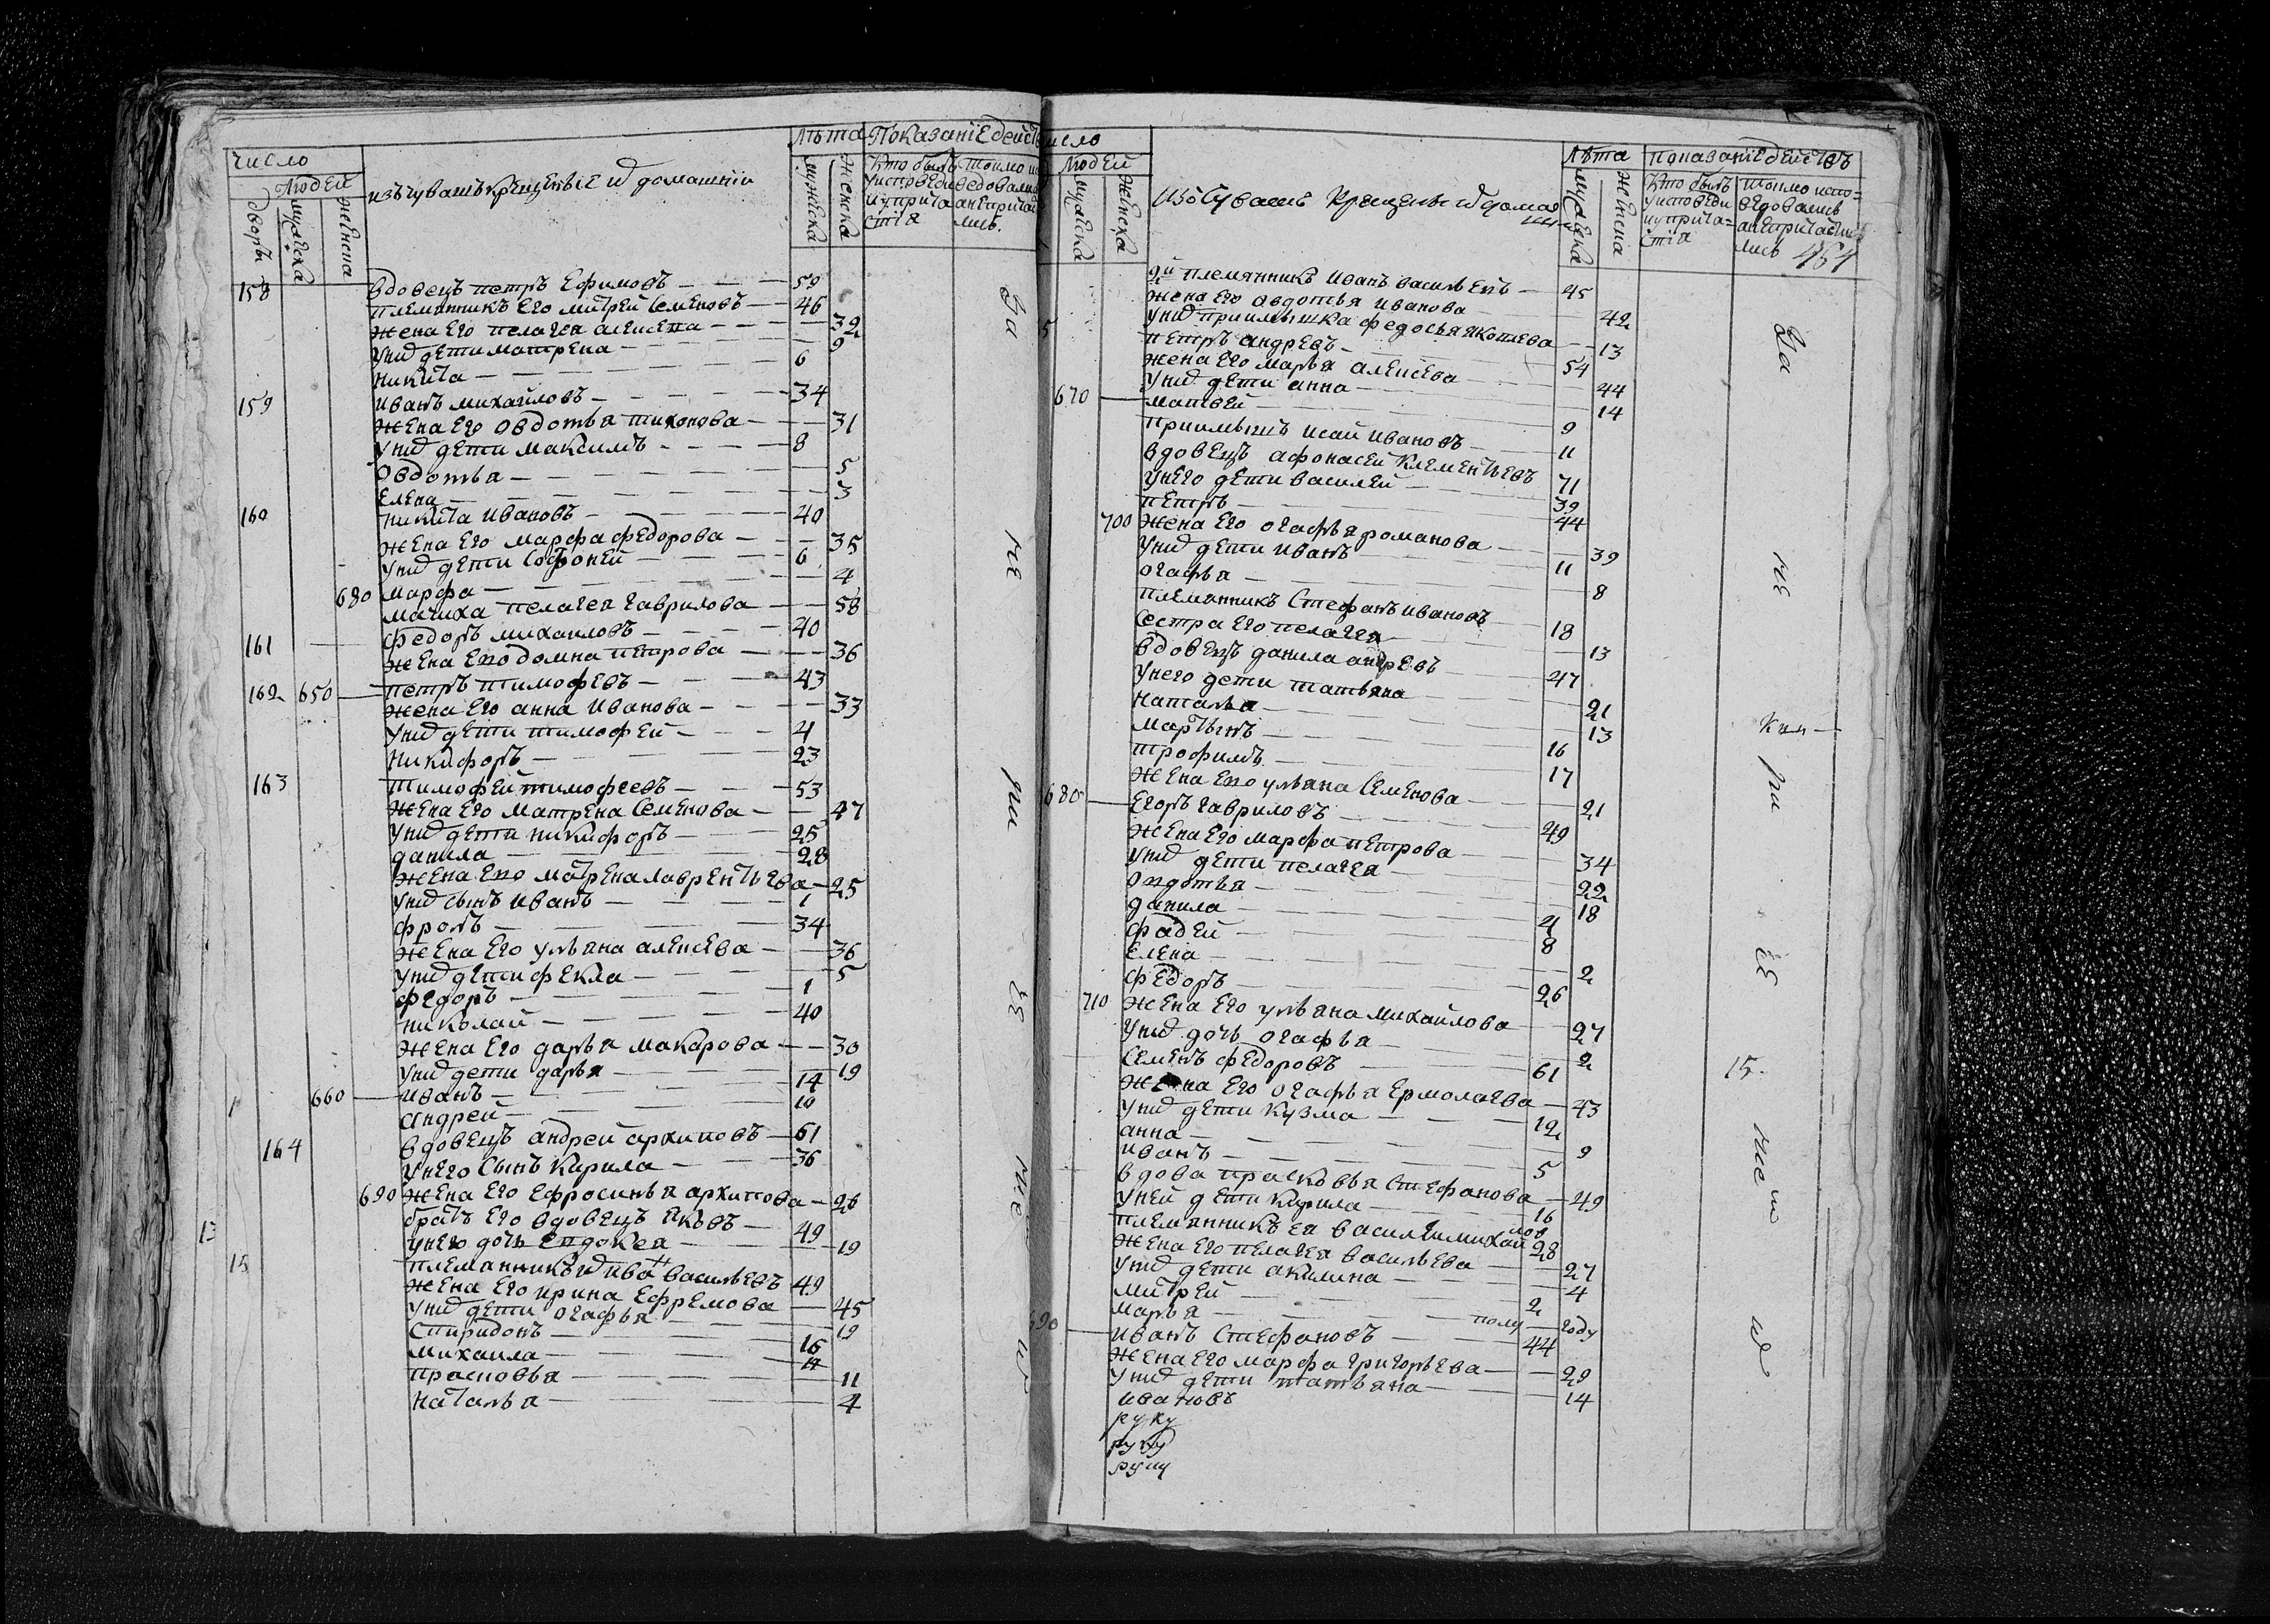 число
Людей
дворъ
мужеска
женска
изъ чувашъ крещеныіе и домашніи
Лѣта
мужеска
женска
Показаніе действ
Кто былъ у исповеди и у прича стія
токмо исповедовались а не причас лись.
158 вдовецъ петръ Ефимовъ — 59
племянникъ Его митрей Семеновъ — 46
жена Его пелагея алексева — 32
у них дети матрена — 9
никита — 6
159 иванъ михайловъ — 34
жена Его овдотья тихонова — 31
у них дети максимъ — 8
овдотья — 5
Елена — 3
160 никита ивановъ — 40
жена Его марфа федорова — 35
у них дети Софоней — 6
680 марфа — 4
мачиха пелагея гаврилова — 58
161 федоръ михаиловъ — 40
жена Ево домна петрова — 36
162 650 петръ тимофевъ — 43
жена Его анна Иванова — 33
у них дети тимофей — 4
никифоръ — 23
163 тимофей тимофеевъ — 53
жена Его матрена Семенова — 47
у них дети никифоръ — 25
данила — 28
жена Ево матрена лаврентьева — 25
у них сынъ иванъ — 1
фролъ — 34
жена Его ульяна алексева — 36
у них дети фекла — 5
федоръ — 1
николай — 40
жена Его дарья макарова — 30
у них дети дарья — 19
660 иванъ — 14
андрей — 10
164 вдовецъ андрей архиповъ — 61
у него сынъ кирила — 36
690 жена Его Ефросинья архипова — 26
братъ Его вдовецъ яковъ — 49
у него дочь Евдокея — 19
племянникъ их иванъ васильевъ 49
жена Его ирина Ефремова — 45
у них дети огафья — 19
Спиридонъ — 16
михаила — 14
прасковья — 11
наталья — 4
13
15
За
не
ри
ег
не
исло
Людей
мужеска
женска
изо Чувашъ Крещены и домаш
Лѣта
мужеска
женска
показаніе действъ
Кто былъ у исповеди и у прича= стія
токмо испо= ведовались а не причасти лись 454
их племянникъ иванъ васильевъ — 45
жена Его овдотья иванова — 42
у них приимышка федосья яковлева — 13
петръ андревъ — 54
жена Его марья алексева — 44
у них дети анна — 14
670 матвей — 9
приимышъ исаи ивановъ — 11
вдовецъ афонасей клементьевъ 71
у него дети василей — 39
петръ — 44
700 жена Его огафья романова — 39
у них дети иванъ — 11
огафья — 8
племянникъ Стефанъ ивановъ — 18
сестра Его пелагея — 13
вдовецъ данила андревъ — 47
у него дети татьяна — 21
наталья — 13
мартынъ — 16
трофимъ — 17
жена Ево ульяна Семенова — 21
680 Егоръ гавриловъ — 49
жена Его марфа петрова — 34
у них дети пелагея — 22
овдотья — 18
данила — 4
фадей — 8
Елена — 2
федоръ — 26
710 жена Его ульяна михайлова — 27
у них дочь огафья — 2
Семенъ федоровъ — 61
жена Его огафья Ермолаева — 43
у них дети кузма — 12
анна — 9
иванъ — 5
вдова прасковья Стефанова — 49
у ней дети кирила — 16
племянникъ ея василеи михаи лов 28
жена Его пелагея васильева — 27
у них дети акилина — 4
митрей — 2
марья — полу году
690 иванъ Стефановъ — 44
жена Его марфа григорьева — 29
у них дети татьяна — 14
ивановъ
руку
руку
руку
За
не
ри
15.
не